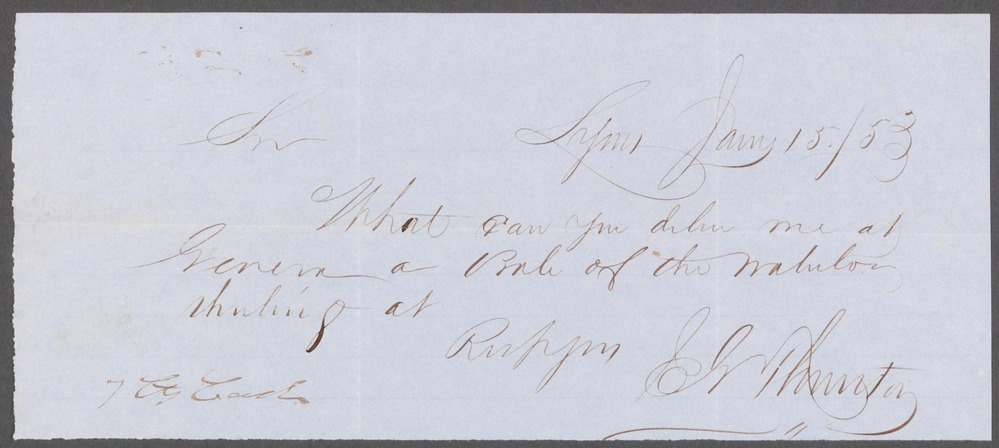 Sir Lyons Jany 15./53
What can you deliver me at
Geneva a Bale of the Waterloo
sheeting at
Respy yrs E G Thurston
7 Cash